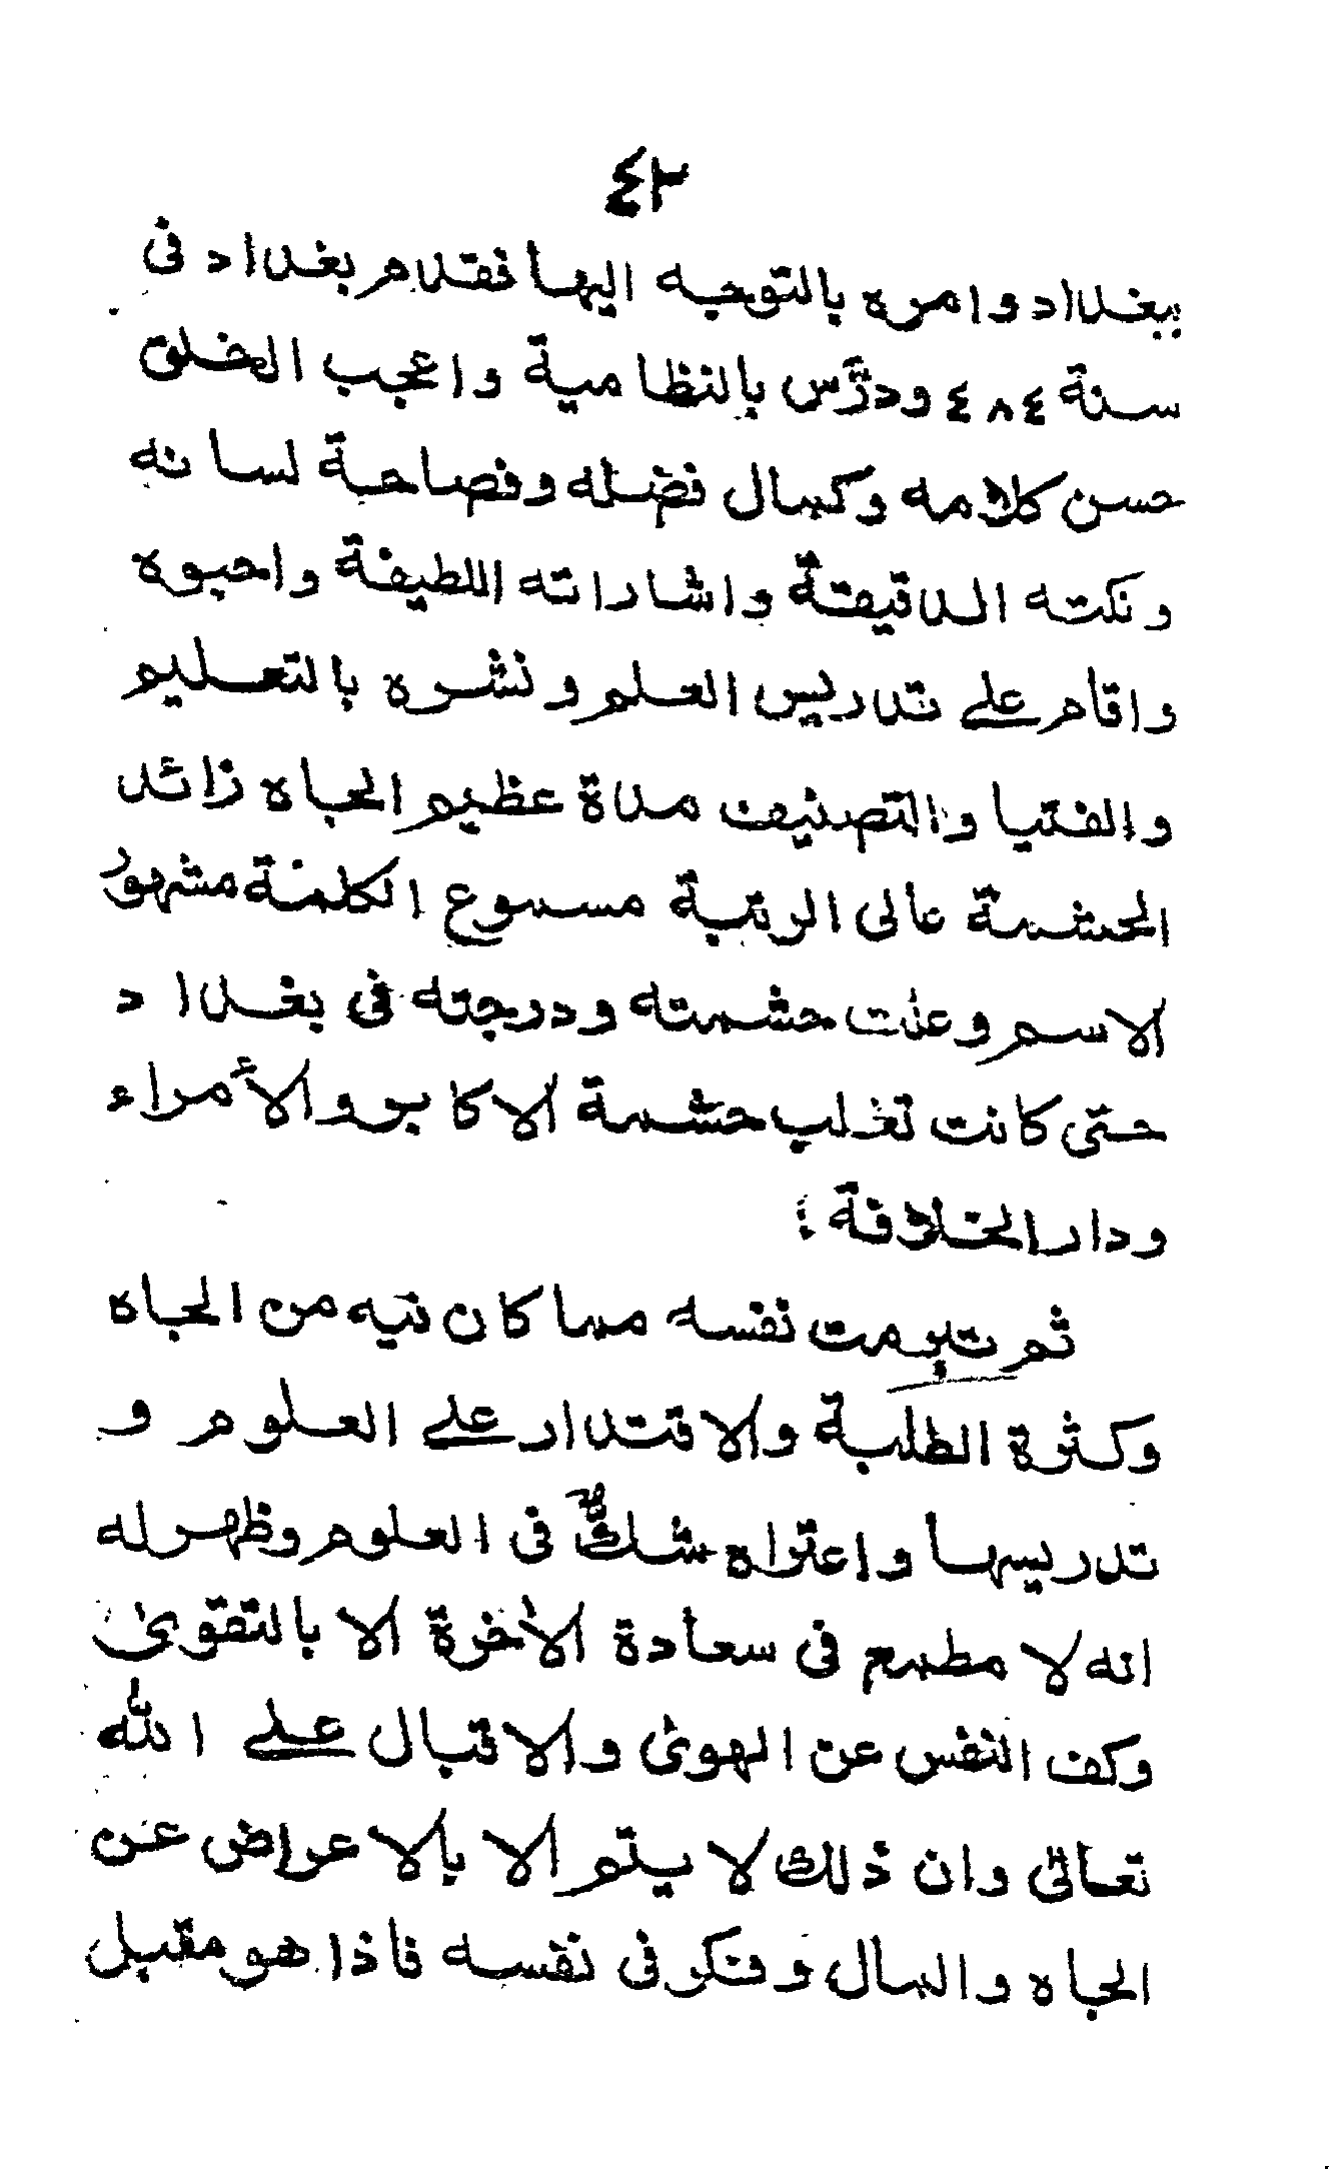 ٤٢
ببغداد وامره بالتوجه اليها فقدم بغداد فى
سنة ٤٨٤ ودرّس بالنظامية واعجب الخلق
حسن كلامه وكمال فضله وفصاحة لسانه
ونكته الدقيقة واشاراته اللطيفة واحبوه
واقام على تدريس العلم ونشره بالتعليم
والفتيا والتصنيف مدة عظيم الجاه زائد
الحشمة عالى الرتبة مسموع الكلمة مشهور
الاسم وعلت حشمته ودرجته فى بغداد
حتى كانت تغلب حشمة الاكابر والأمراء
ودار الخلافة :
ثم تبرمت نفسه مما كان فيه من الجاه
وكثرة الطلبة والاقتدار على العلوم و
تدريسها واعتراه شكٌ فى العلوم وظهر له
انه لا مطمع فى سعادة الاخرة الا بالتقوىٰ
وكف النفس عن الهوىٰ والاقبال على الله
تعالىٰ وان ذلك لا يتم الا بالاعراض عن
الجاه والمال وفكر فى نفسه فاذا هو مقبل